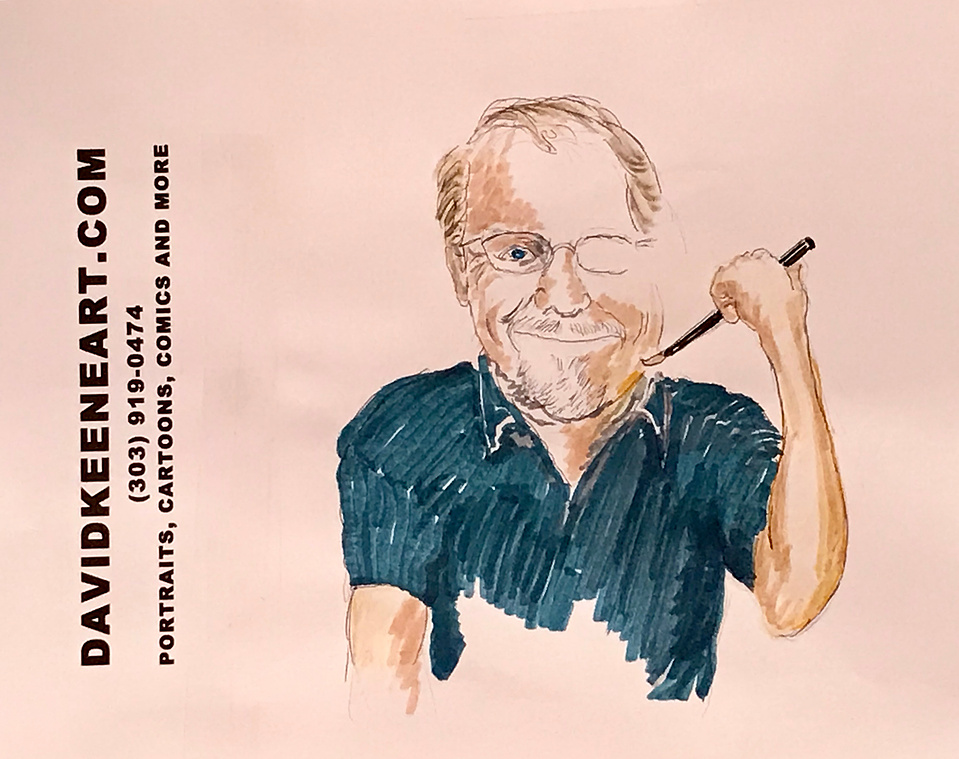 DAVIDKEENEART.COM
(303) 919-0474
PORTRAITS, CARTOONS, COMICS AND MORE